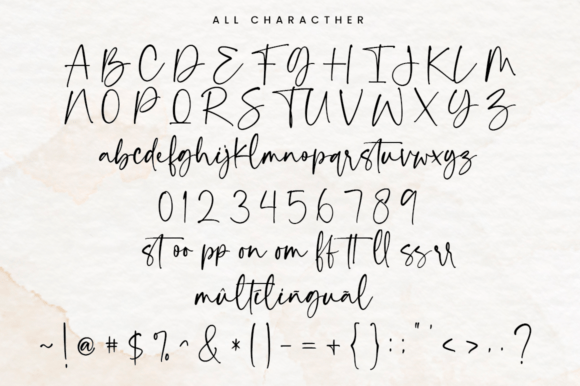 ALL CHARACTHER
A B C D E F G H I J K L M
N O P Q R S T U V W X Y Z
abcdefghijklmnopqrstuvwxyz
0 1 2 3 4 5 6 7 8 9
st oo pp on om ff tt ll ss rr
mûltīlïñguāl
~ ! @ # $ % ^ & * ( ) - = + { } : ; " ' < > . . ?